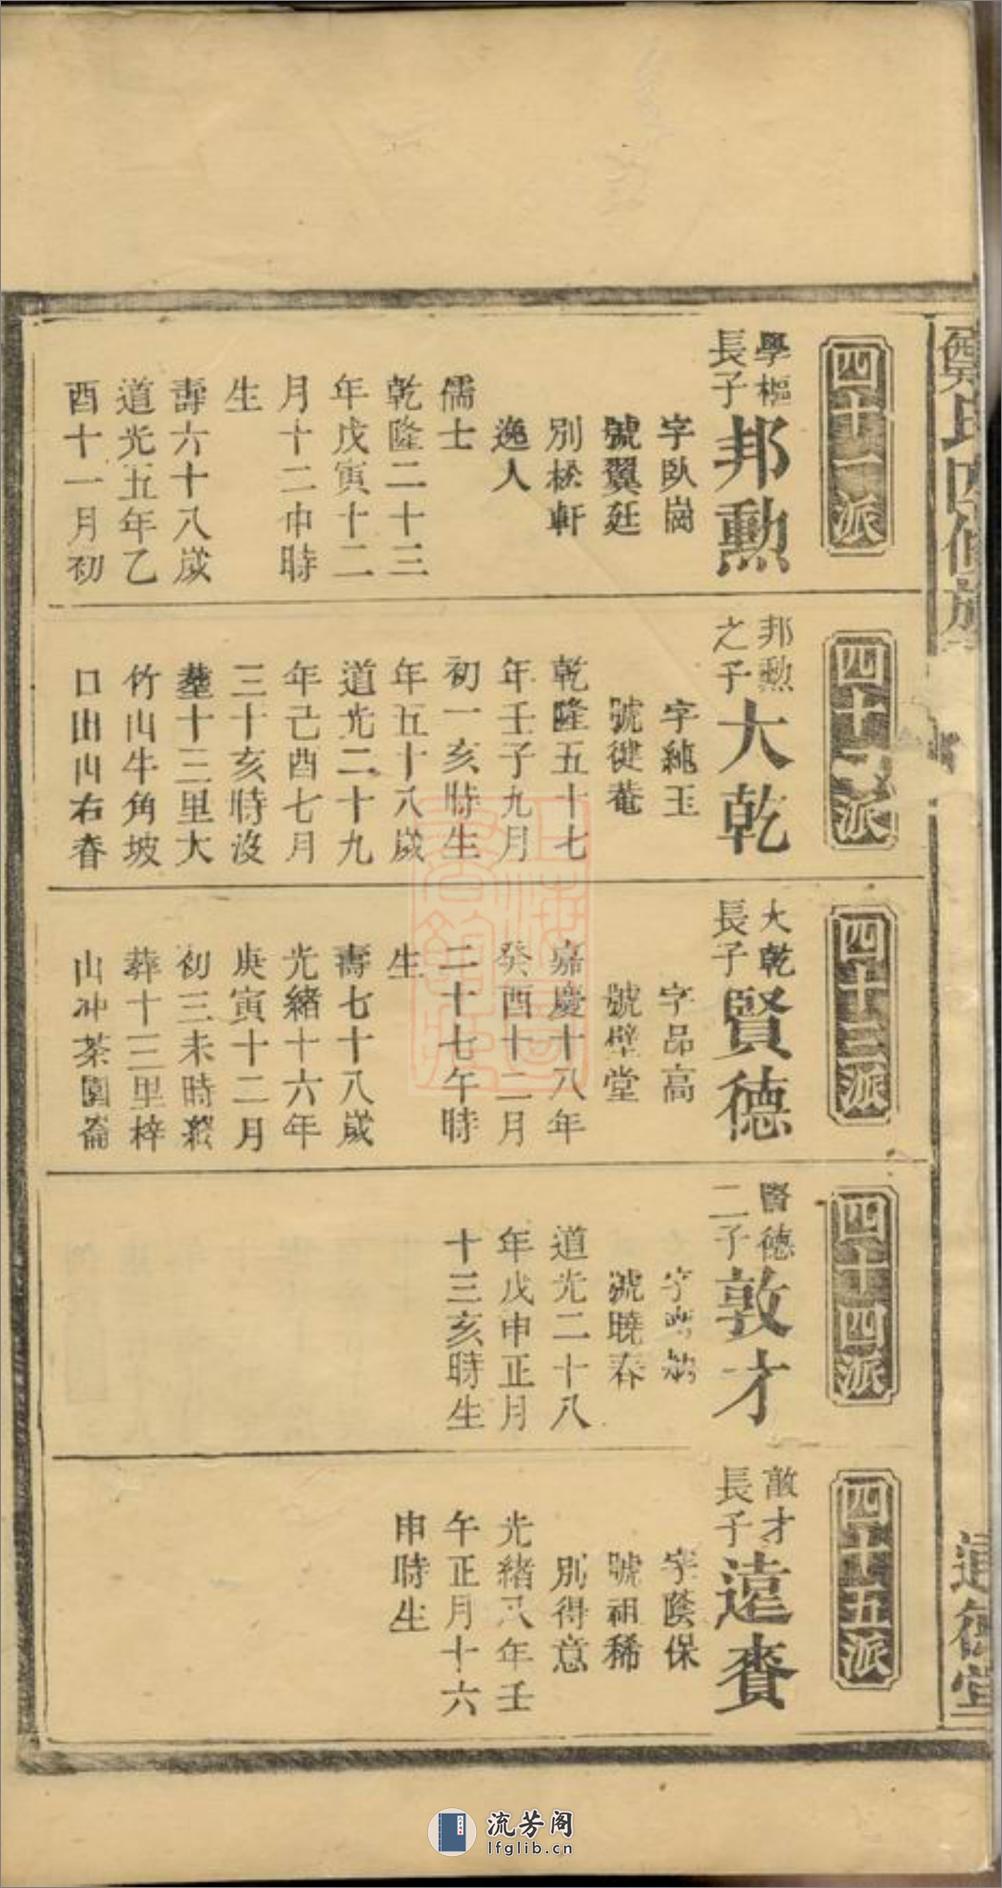 鄭氏四修族
通德堂
四十一派
學樞
長子
邦勲
字臥崗
號翼廷
別松軒
逸人
儒士
乾隆二十三
年戊寅十二
月十二申時
生
壽六十八歲
道光五年乙
酉十一月初
四十二派
邦勲
之子
大乾
字純玉
號健菴
乾隆五十七
年壬子九月
初一亥時生
年五十八歲
道光二十九
年己酉七月
三十亥時沒
葬十三里大
竹山牛角坡
口由山右脊
四十三派
大乾
長子
賢德
字昂高
號壁堂
嘉慶十八年
癸酉十二月
二十七午時
生
壽七十八歲
光緒十六年
庚寅十二月
初三未時歿
葬十三里梓
山冲茶園崙
四十四派
賢德
二子
敦才
字
號曉春
道光二十八
年戊申正月
十三亥時生
四十五派
敦才
長子
遠賚
字蔭保
號祖稀
別得意
光緒八年壬
午正月十六
申時生
流芳阁
lfglib.cn